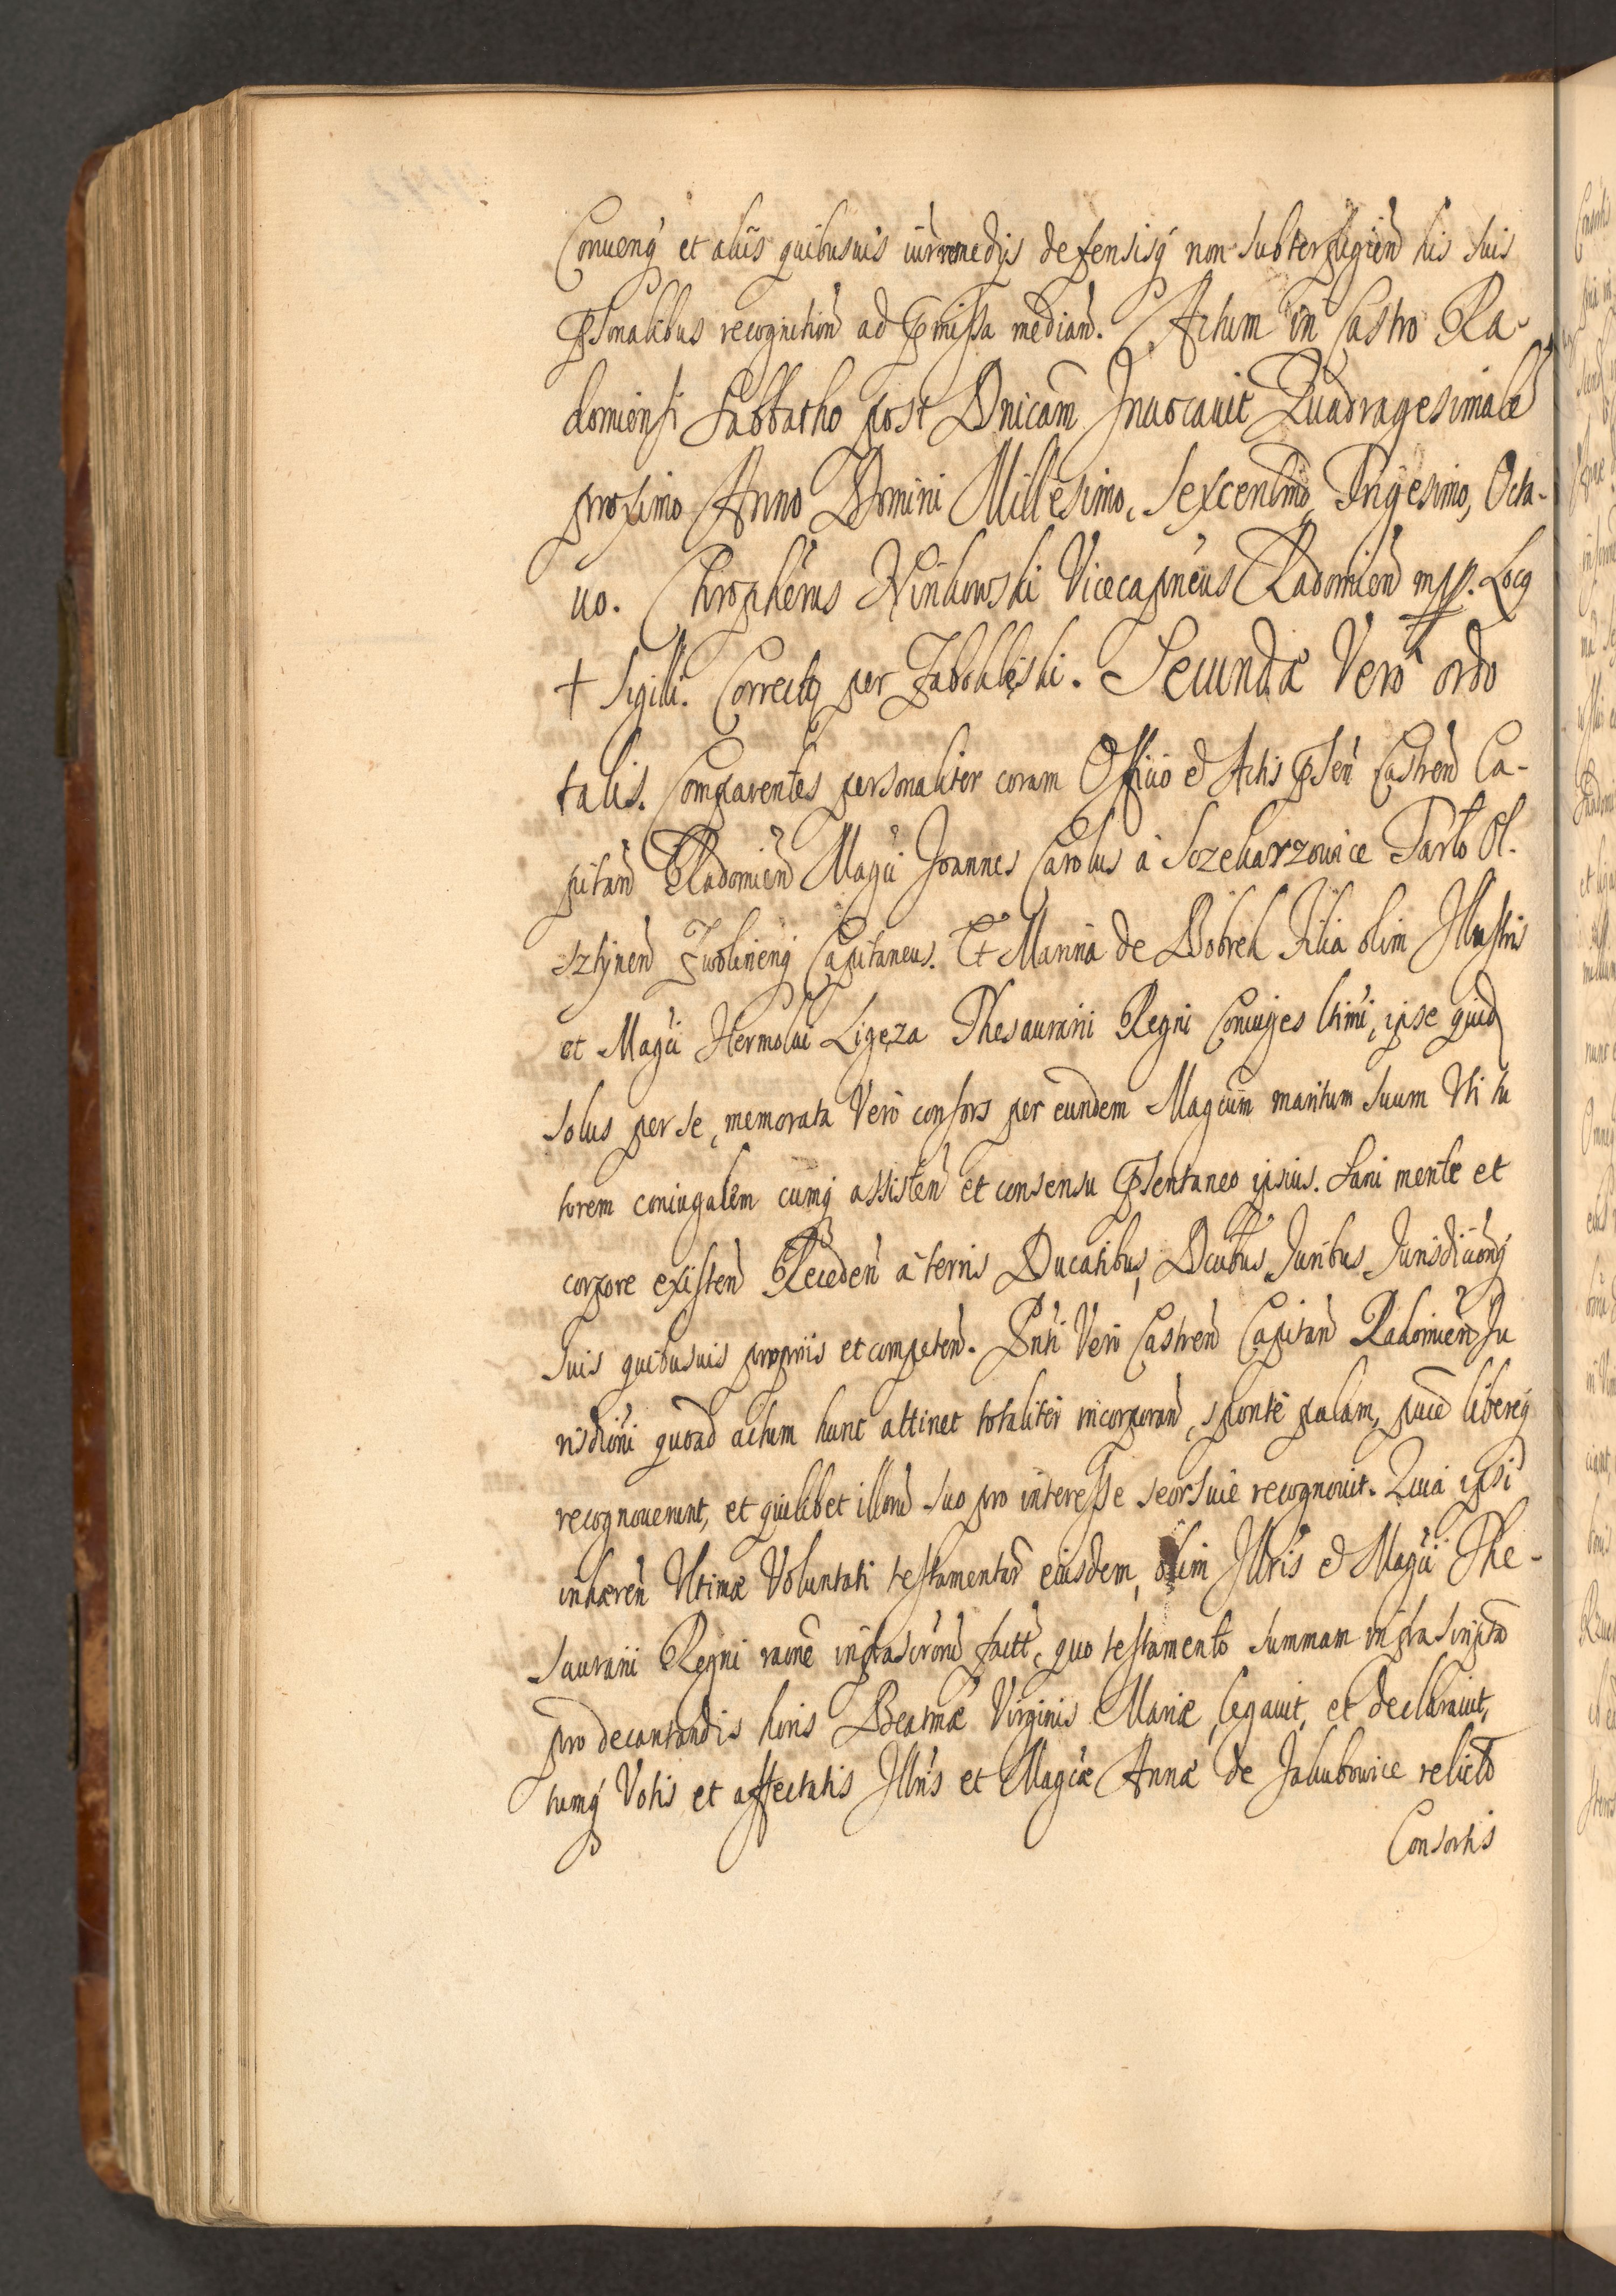 Conuenq́ et aliis quibusuis iur̃remedijs defensisq́ non subterfugień his suis
Psonalibus recognition̄ ad Pmissa median̄. Actum in Castro Ra-
domiensi Sabbatho post Dnicam̃ Inuocauit Quadragesimalẽ
proximo Anno Domini Millesimo, Sexcentm̃o, Trigesimo, Octa-
uo. Chrophẽrus Winkowski Vicecapnẽus Radomień mpp. Locq
+ Sigilli. Correctq per Zabokleski. Secundæ Verò ordo
talis. Comparentes personaliter coram Officio & Actis Psen̄ Castren̄ Ca-
pitan̄ Radomien̄ Magcĩ Joannes Carolus à Sczekarzowice Tarło Ol-
sztynen̄ Zwolinenq́ Capitaneus. Et Marina de Bobrek Filia olim Illustris
et Magcĩ Hermolai Ligęza Thesaurarii Regni Coniuges ltimi, ipse quid
solus per se, memorata Verò consors per eundem Magcum̃ maritum suum Vti tu
torem coniugalem cumq́ assisten̄ et consensu Psentaneo ipsius. Sani mente et
corpore existen̄ Receden̄ à terris Ducatibus, Dcubus̃ Juribus Jurisdicionq́
suis quibusuis propriis et competen̄. Pnti Verò Castren̄ Capitan̄ Radomien̄ Ju
risdioni quoad actum hunc attinet totaliter incorporan̄, sponte palam, puce libereq́
recognouerunt, et quilibet illorũ suo pro interesse seorsuie recognouit. Quia ipsi
inhæren̄ Vltimæ Voluntati testamentar̃ eiusdem, olim Illris̃ & Magcĩ The-
saurarii Regni raõne infrascrorũ factt̃, quo testamento summam infrascriptã
pro decantandis horis Beatmæ Virginis Mariæ legauit, et declarauit,
tumq́ Votis et affectatis Illris̃ et Magcæ Annæ de Jakubowice relictæ
Consortis